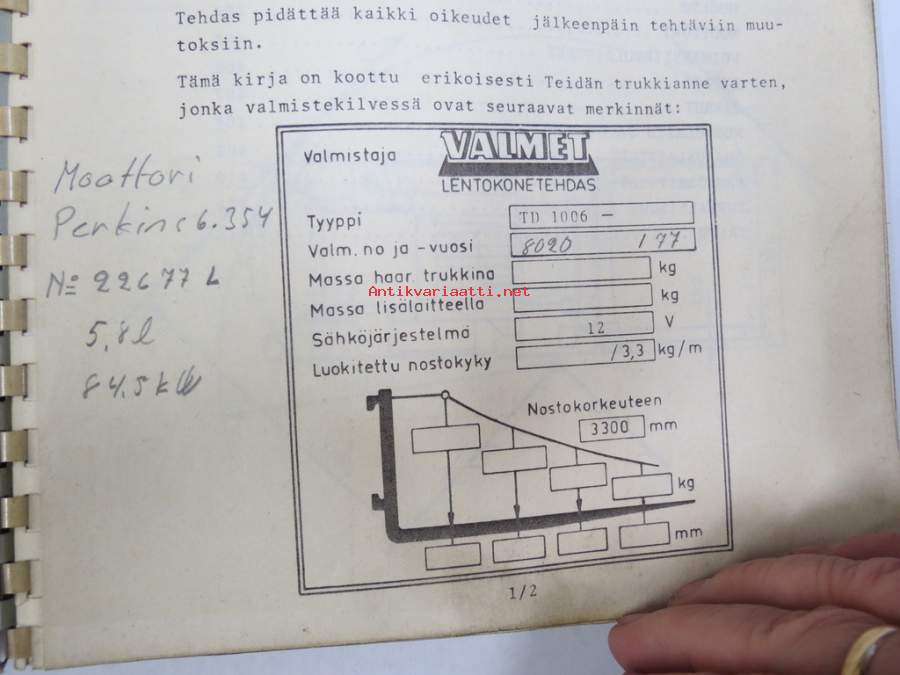 Tehdas pidättää kaikki oikeudet jälkeenpäin tehtäviin muu-
toksiin.
Tämä kirja on koottu erikoisesti Teidän trukkianne varten,
jonka valmistekilvessä ovat seuraavat merkinnät:
Moottori
Perkins 6.354
No 22677 L
5,8 l
84.5 kW
Valmistaja
VALMET
LENTOKONETEHDAS
Tyyppi TD 1006 -
Valm. no ja -vuosi 8020 / 77
Massa haar. trukkina kg
Antikvariaatti.net
Massa lisälaitteella kg
Sähköjärjestelmä 12 V
Luokitettu nostokyky /3,3 kg/m
Nostokorkeuteen
3300 mm
kg
mm
1/2